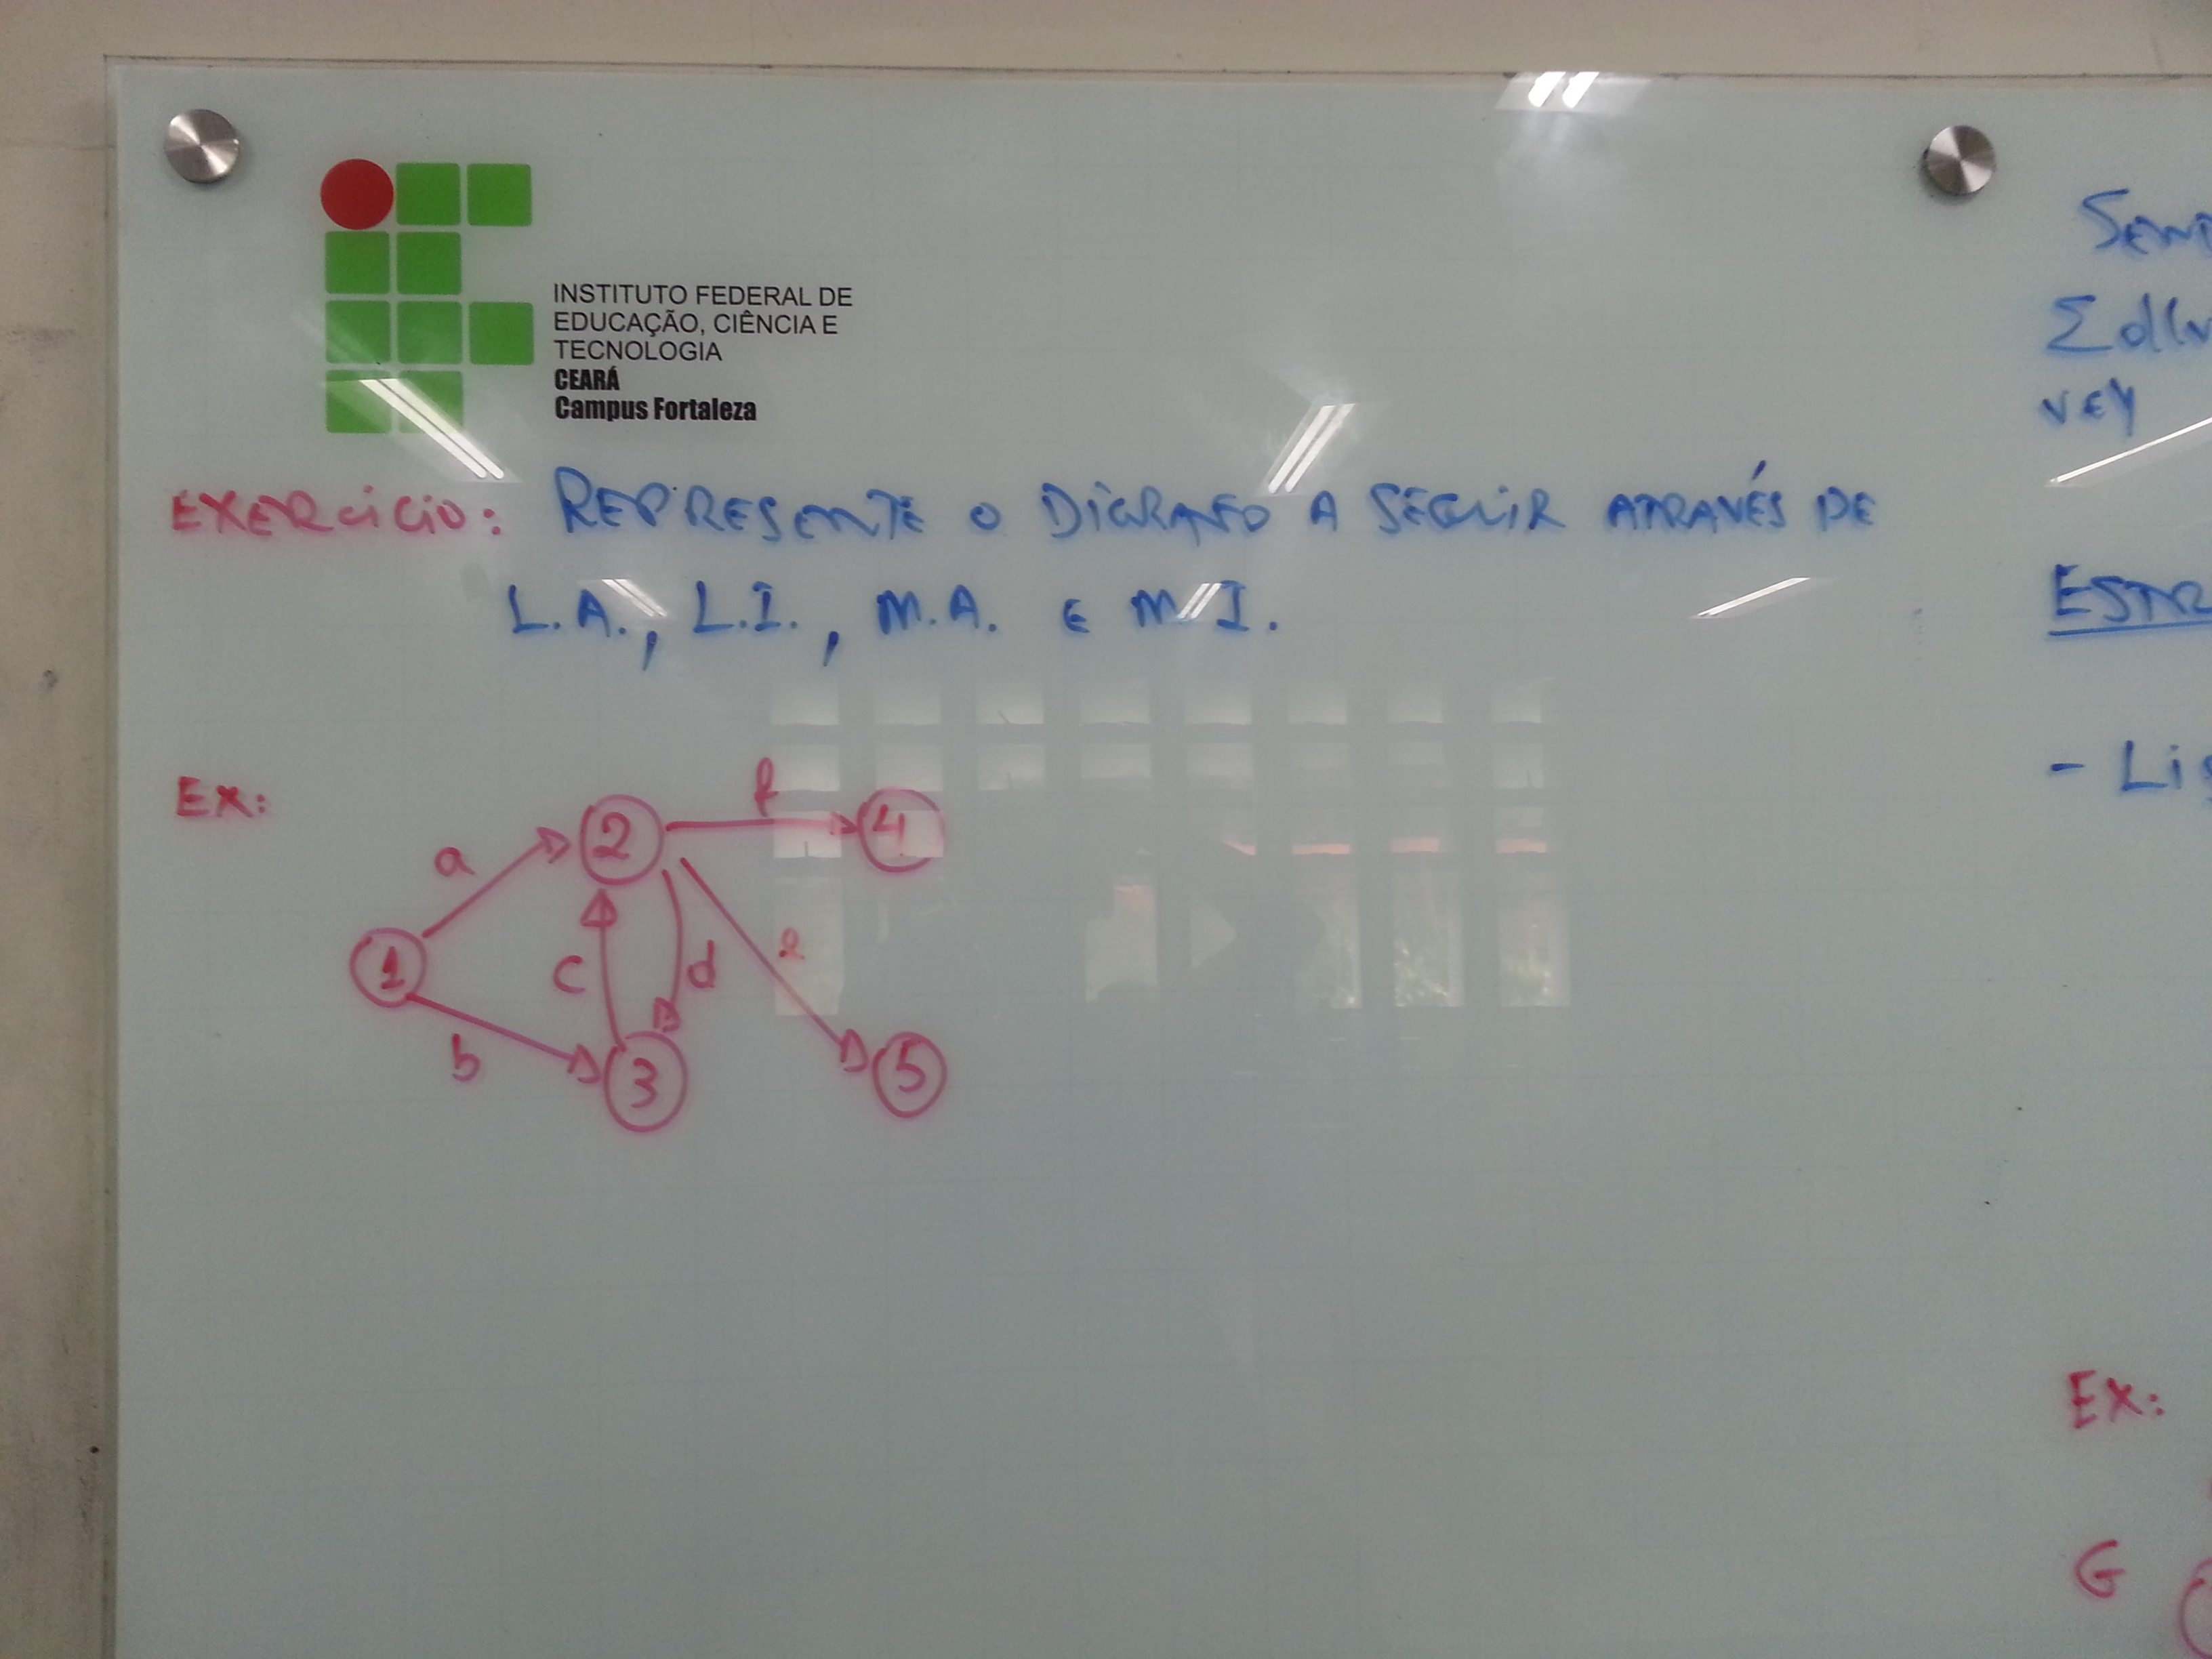 INSTITUTO FEDERAL DE
EDUCAÇÃO, CIÊNCIA E
TECNOLOGIA
CEARÁ
Campus Fortaleza
EXERCÍCIO: REPRESENTE O DIGRAFO A SEGUIR ATRAVÉS DE
L.A., L.I., M.A. E M.I.
Ex:
a
2
f
4
1
c
d
e
b
3
5
VEY
Ex:
G